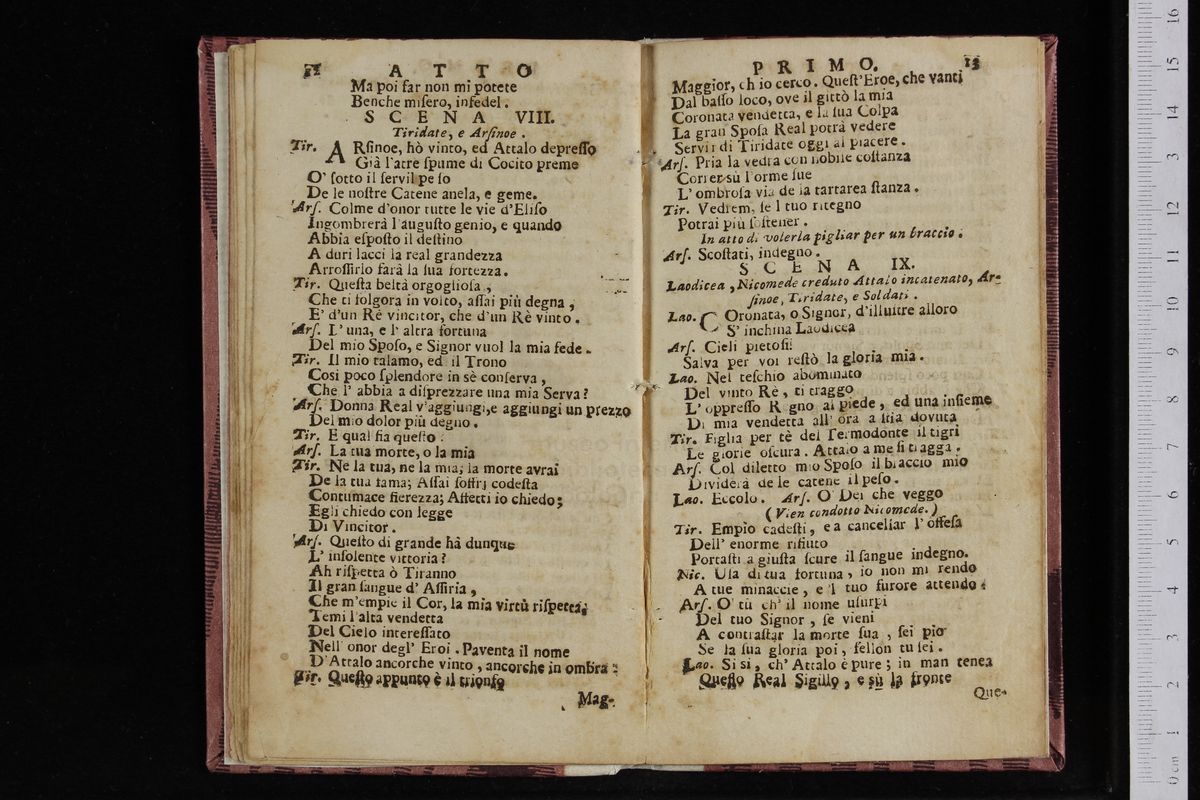 A T T O
Ma poi far non mi potete
Benche misero, infedel.
S C E N A VIII.
Tiridate, e Arsinoe.
Tir. ARſinoe, hò vinto, ed Attalo depreſſo
Già l'atre ſpume di Cocito preme
O' ſotto il ſervil peſo
De le noſtre Catene anela, e geme.
Arſ. Colme d'onor tutte le vie d'Eliſo
Ingombrerà l'auguſto genio, e quando
Abbia eſpoſto il deſtino
A duri lacci la real grandezza
Arroſſirlo farà la ſua fortezza.
Tir. Queſta beltà orgoglioſa,
Che ti folgora in volto, aſſai più degna,
E' d'un Rè vincitor, che d'un Rè vinto.
Arſ. L'una, e l'altra fortuna
Del mio Spoſo, e Signor vuol la mia fede.
Tir. Il mio talamo, ed il Trono
Cosi poco ſplendore in sè conſerva,
Che l'abbia a diſprezzare una mia Serva?
Arſ. Donna Real v'aggiungi, e aggiungi un prezzo
Del mio dolor più degno.
Tir. E qual fia queſto?
Arſ. La tua morte, o la mia
Tir. Ne la tua, ne la mia; la morte avrai
De la tua fama; Aſſai ſoffrj codeſta
Contumace fierezza; Affetti io chiedo;
Egli chiedo con legge
Di Vincitor.
Arſ. Queſto di grande hà dunque
L'inſolente vittoria?
Ah riſpetta ò Tiranno
Il gran ſangue d'Aſſiria,
Che m'empie il Cor, la mia virtù riſpetta;
Temi l'alta vendetta
Del Cielo intereſſato
Nell'onor degl'Eroi. Paventa il nome
D'Attalo ancorche vinto, ancorche in ombra:
Tir. Queſto appunto è il trionfo
Mag-
P R I M O. 13
Maggior, ch io cerco. Queſt'Eroe, che vanti
Dal baſſo loco, ove il gittò la mia
Coronata vendetta, e la ſua Colpa
La gran Spoſa Real potrà vedere
Servir di Tiridate oggi al piacere.
Arſ. Pria la vedrà con nobile coſtanza
Correr sù l'orme ſue
L'ombroſa via de la tartarea ſtanza.
Tir. Vedrem, ſe l tuo ritegno
Potrai più ſoſtener.
In atto di volerla pigliar per un braccio.
Arſ. Scoſtati, indegno.
S C E N A IX.
Laodicea, Nicomede creduto Attalo incatenato, Ar-
ſinoe, Tiridate, e Soldati.
Lao. COronata, o Signor, d'illuſtre alloro
S'inchina Laodicea
Arſ. Cieli pietoſi!
Salva per voi reſtò la gloria mia.
Lao. Nel teſchio abominato
Del vinto Rè, ti traggo
L'oppreſſo R gno al piede, ed una inſieme
Di mia vendetta all'ora a ſtia dovuta
Tir. Figlia per tè del Termodonte il tigri
Le glorie oſcura. Attalo a me ſi tragga.
Arſ. Col diletto mio Spoſo il braccio mio
Dividerà de le catene il peſo.
Lao. Eccolo. Arſ. O Dei che veggo
(Vien condotto Nicomede.)
Tir. Empio cadeſti, e a cancellar l'offeſa
Dell'enorme rifiuto
Portaſti a giuſta ſcure il ſangue indegno.
Nic. Uſa di tua fortuna, io non mi rendo
A tue minaccie, e'l tuo furore attendo.
Arſ. O tù ch'il nome uſurpi
Del tuo Signor, ſe vieni
A contraſtar la morte ſua, ſei pio
Se la ſua gloria poi, fellon tu ſei.
Lao. Si si, ch'Attalo è pure; in man tenea
Queſto Real Sigillo, e sù la fronte
Que-